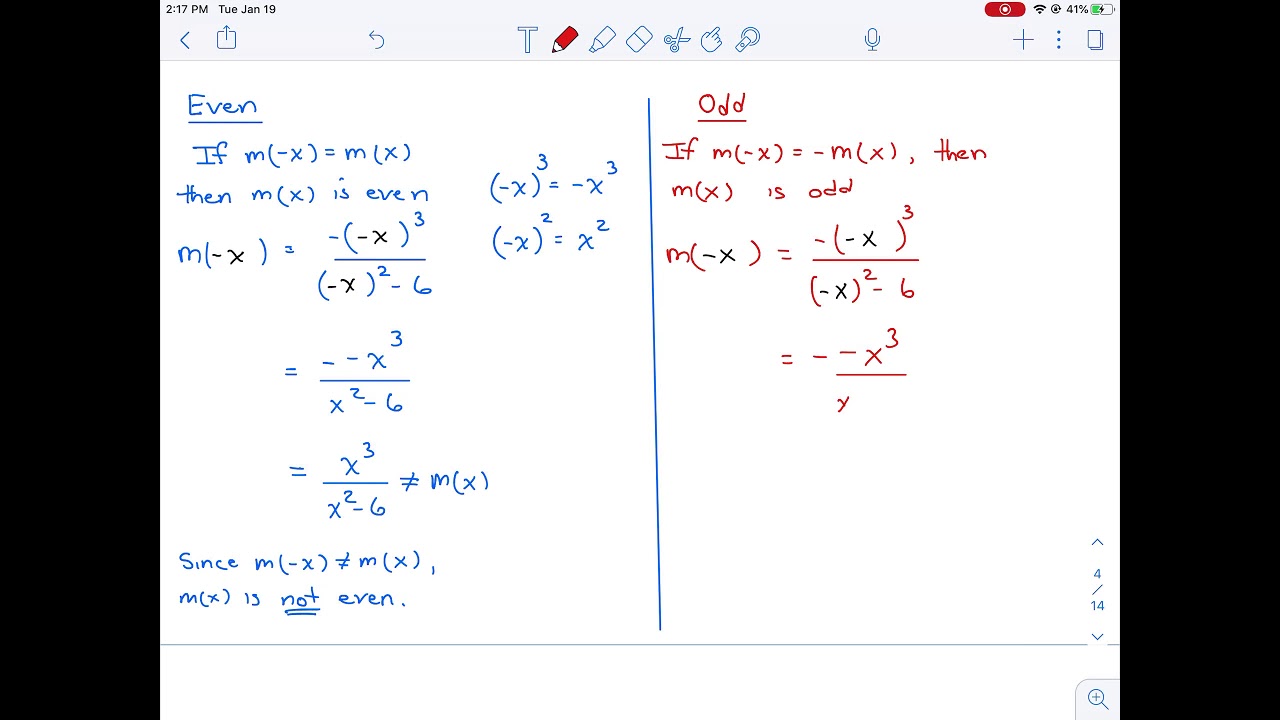 2:17 PM Tue Jan 19
41%
T
Even
If m(-x) = m(x)
then m(x) is even
(-x)³ = -x³
(-x)² = x²
m(-x) = -(-x)³ / (-x)² - 6
= - -x³ / x² - 6
= x³ / x² - 6 ≠ m(x)
Since m(-x) ≠ m(x),
m(x) is not even.
Odd
If m(-x) = -m(x), then
m(x) is odd
m(-x) = -(-x)³ / (-x)² - 6
= - -x³ / x
4
/
14